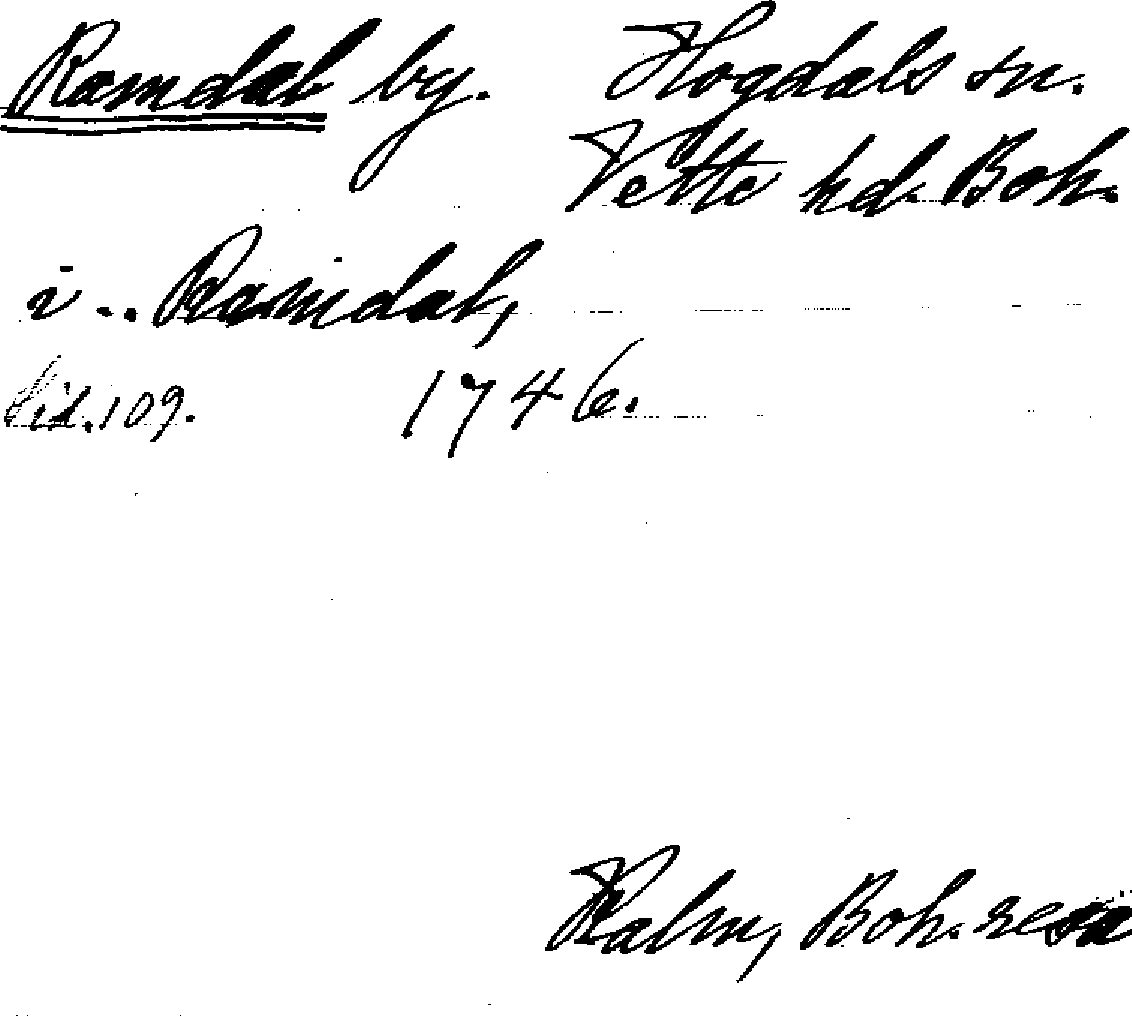 Ramdal by. Hogdals sn.
Vette hd. Boh.
i .. Ramdal,
Sid. 109. 1746.
Kalm, Boh. resa